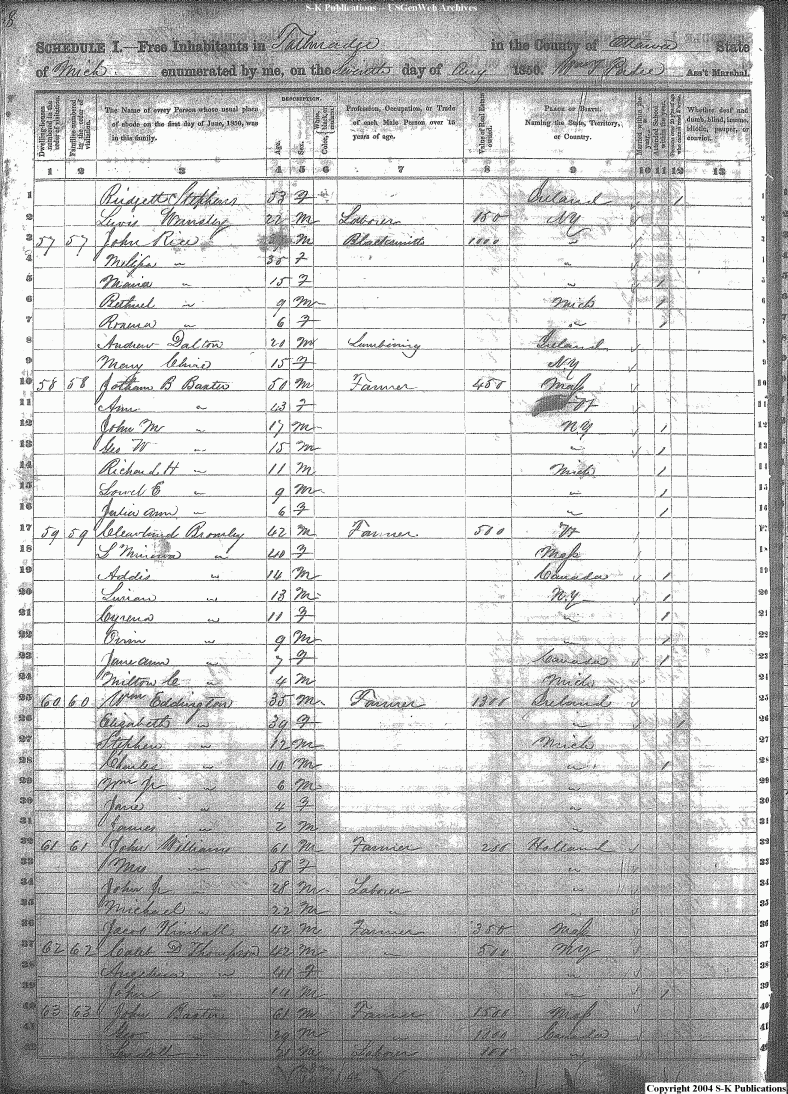 S-K Publications -- USGenWeb Archives
SCHEDULE I.—Free Inhabitants in Tallmadge in the County of Ottawa State
of Mich. enumerated by me, on the day of Aug 1850. Ass't Marshal.
DESCRIPTION.
Dwelling-houses numbered in the order of visitation. Families numbered in the order of visitation. The Name of every Person whose usual place of abode on the first day of June, 1850, was in this family. Age. Sex. Color, Profession, Occupation, or Trade of each Male Person over 15 years of age. Value of Real Estate owned. PLACE OF BIRTH. Naming the State, Territory, or Country. Married within the year. Attended School within the year. Whether deaf and dumb, blind, insane, idiotic, pauper, or convict.
1 2 3 4 5 6 7 8 9 10 11 12 13
1 Bridgett Stephens 53 F Ireland 1 1
2 Lewis Wansley 22 M Laborer 150 NY 2
3 57 57 John Rice M Blacksmith 1000 " 3
4 Melissa " 35 F " 4
5 Maria " 15 F " 1 5
6 Bethuel " 9 M Mich 1 6
7 Roxena " 6 F " 1 7
8 Andrew Dalton 20 M Lumbering Ireland 8
9 Mary Claire 15 F NY 9
10 58 58 Jotham B Baxter 50 M Farmer 450 Mass 10
11 Ann " 43 F Vt 11
12 John M " 17 M NY 1 12
13 Geo W " 15 M " 1 13
14 Richard H " 11 M Mich 1 14
15 Lowel E " 9 M " 1 15
16 Julia Ann " 6 F " 1 16
17 59 59 Cleavland Bromley 42 M Farmer 500 Vt 17
18 L Minerva " 40 F Mass 18
19 Addis " 14 M Canada 1 19
20 Lurian " 13 M N.Y 1 20
21 Cyrena " 11 F " 1 21
22 Orrin " 9 M " 1 22
23 Jane Ann " 7 F Canada 1 23
24 Milton C " 4 M Mich 24
25 60 60 Wm Eddington 35 M Farmer 1300 Ireland 25
26 Elizabeth " 39 F " 1 26
27 Stephen " 12 M Mich 27
28 Charles " 10 M " 1 28
29 Wm Jr " 6 M " 29
30 Jane " 4 F " 30
31 James " 2 M " 31
32 61 61 John Williams 61 M Farmer 200 Holland 32
33 Mrs " 58 F " 33
34 John Jr " 28 M Laborer " 34
35 Michael " 22 M " " 35
36 Jacob Kimball 42 M Farmer 350 Mass 36
37 62 62 Caleb D Thompson 42 M " 500 NY 37
38 Angelina " 41 F " 38
39 John " 14 M " 1 39
40 63 63 John Baxter 61 M Farmer 1500 Mass 40
41 Geo " 29 M " 1000 Canada 41
42 " 21 M Laborer 100 " 42
Copyright 2004 S-K Publications